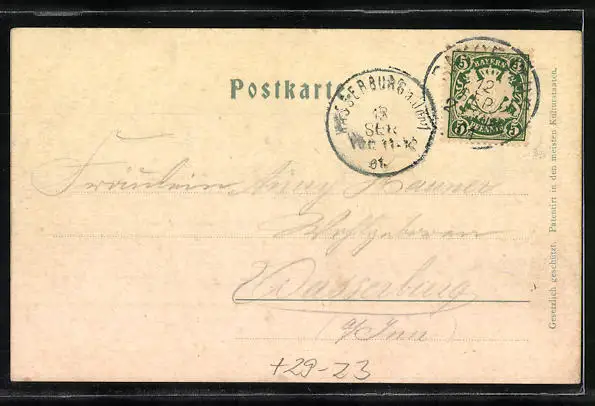 Postkarte
WASSERBURG a.Inn
13
SEP
11-12
01.
BAYERN
5 5
12
SEP
5 PFENNIG 5
Fräulein Anny
Wohlgeboren
Wasserburg
a/Inn
+29-23
Gesetzlich geschützt. Patentirt in den meisten Kulturstaaten.